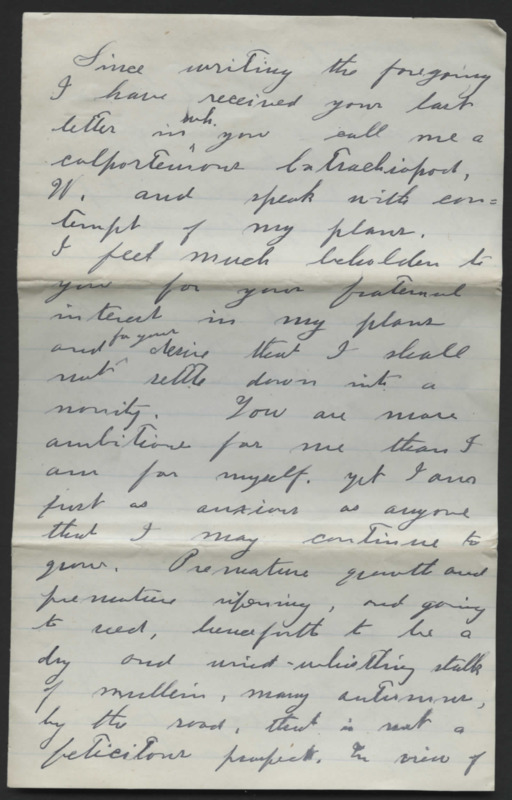 Since writing the foregoing
I have received your last
letter in wh. you call me a
calportenious batrachiopod,
W. and speak with con=
tempt of my plans.
I feel much beholden to
you for your fraternal
interest in my plans
and for your desire that I shall
not settle down into a
nonity. You are more
ambitious for me than I
am for myself. yet I am
just as anxious as anyone
that I may continue to
grow. Premature growth and
premature ripening, and going
to seed, henceforth to be a
dry and wind-whistling stalk
of mullein, many autumns,
by the road, that is not a
felicitous prospect. In view of